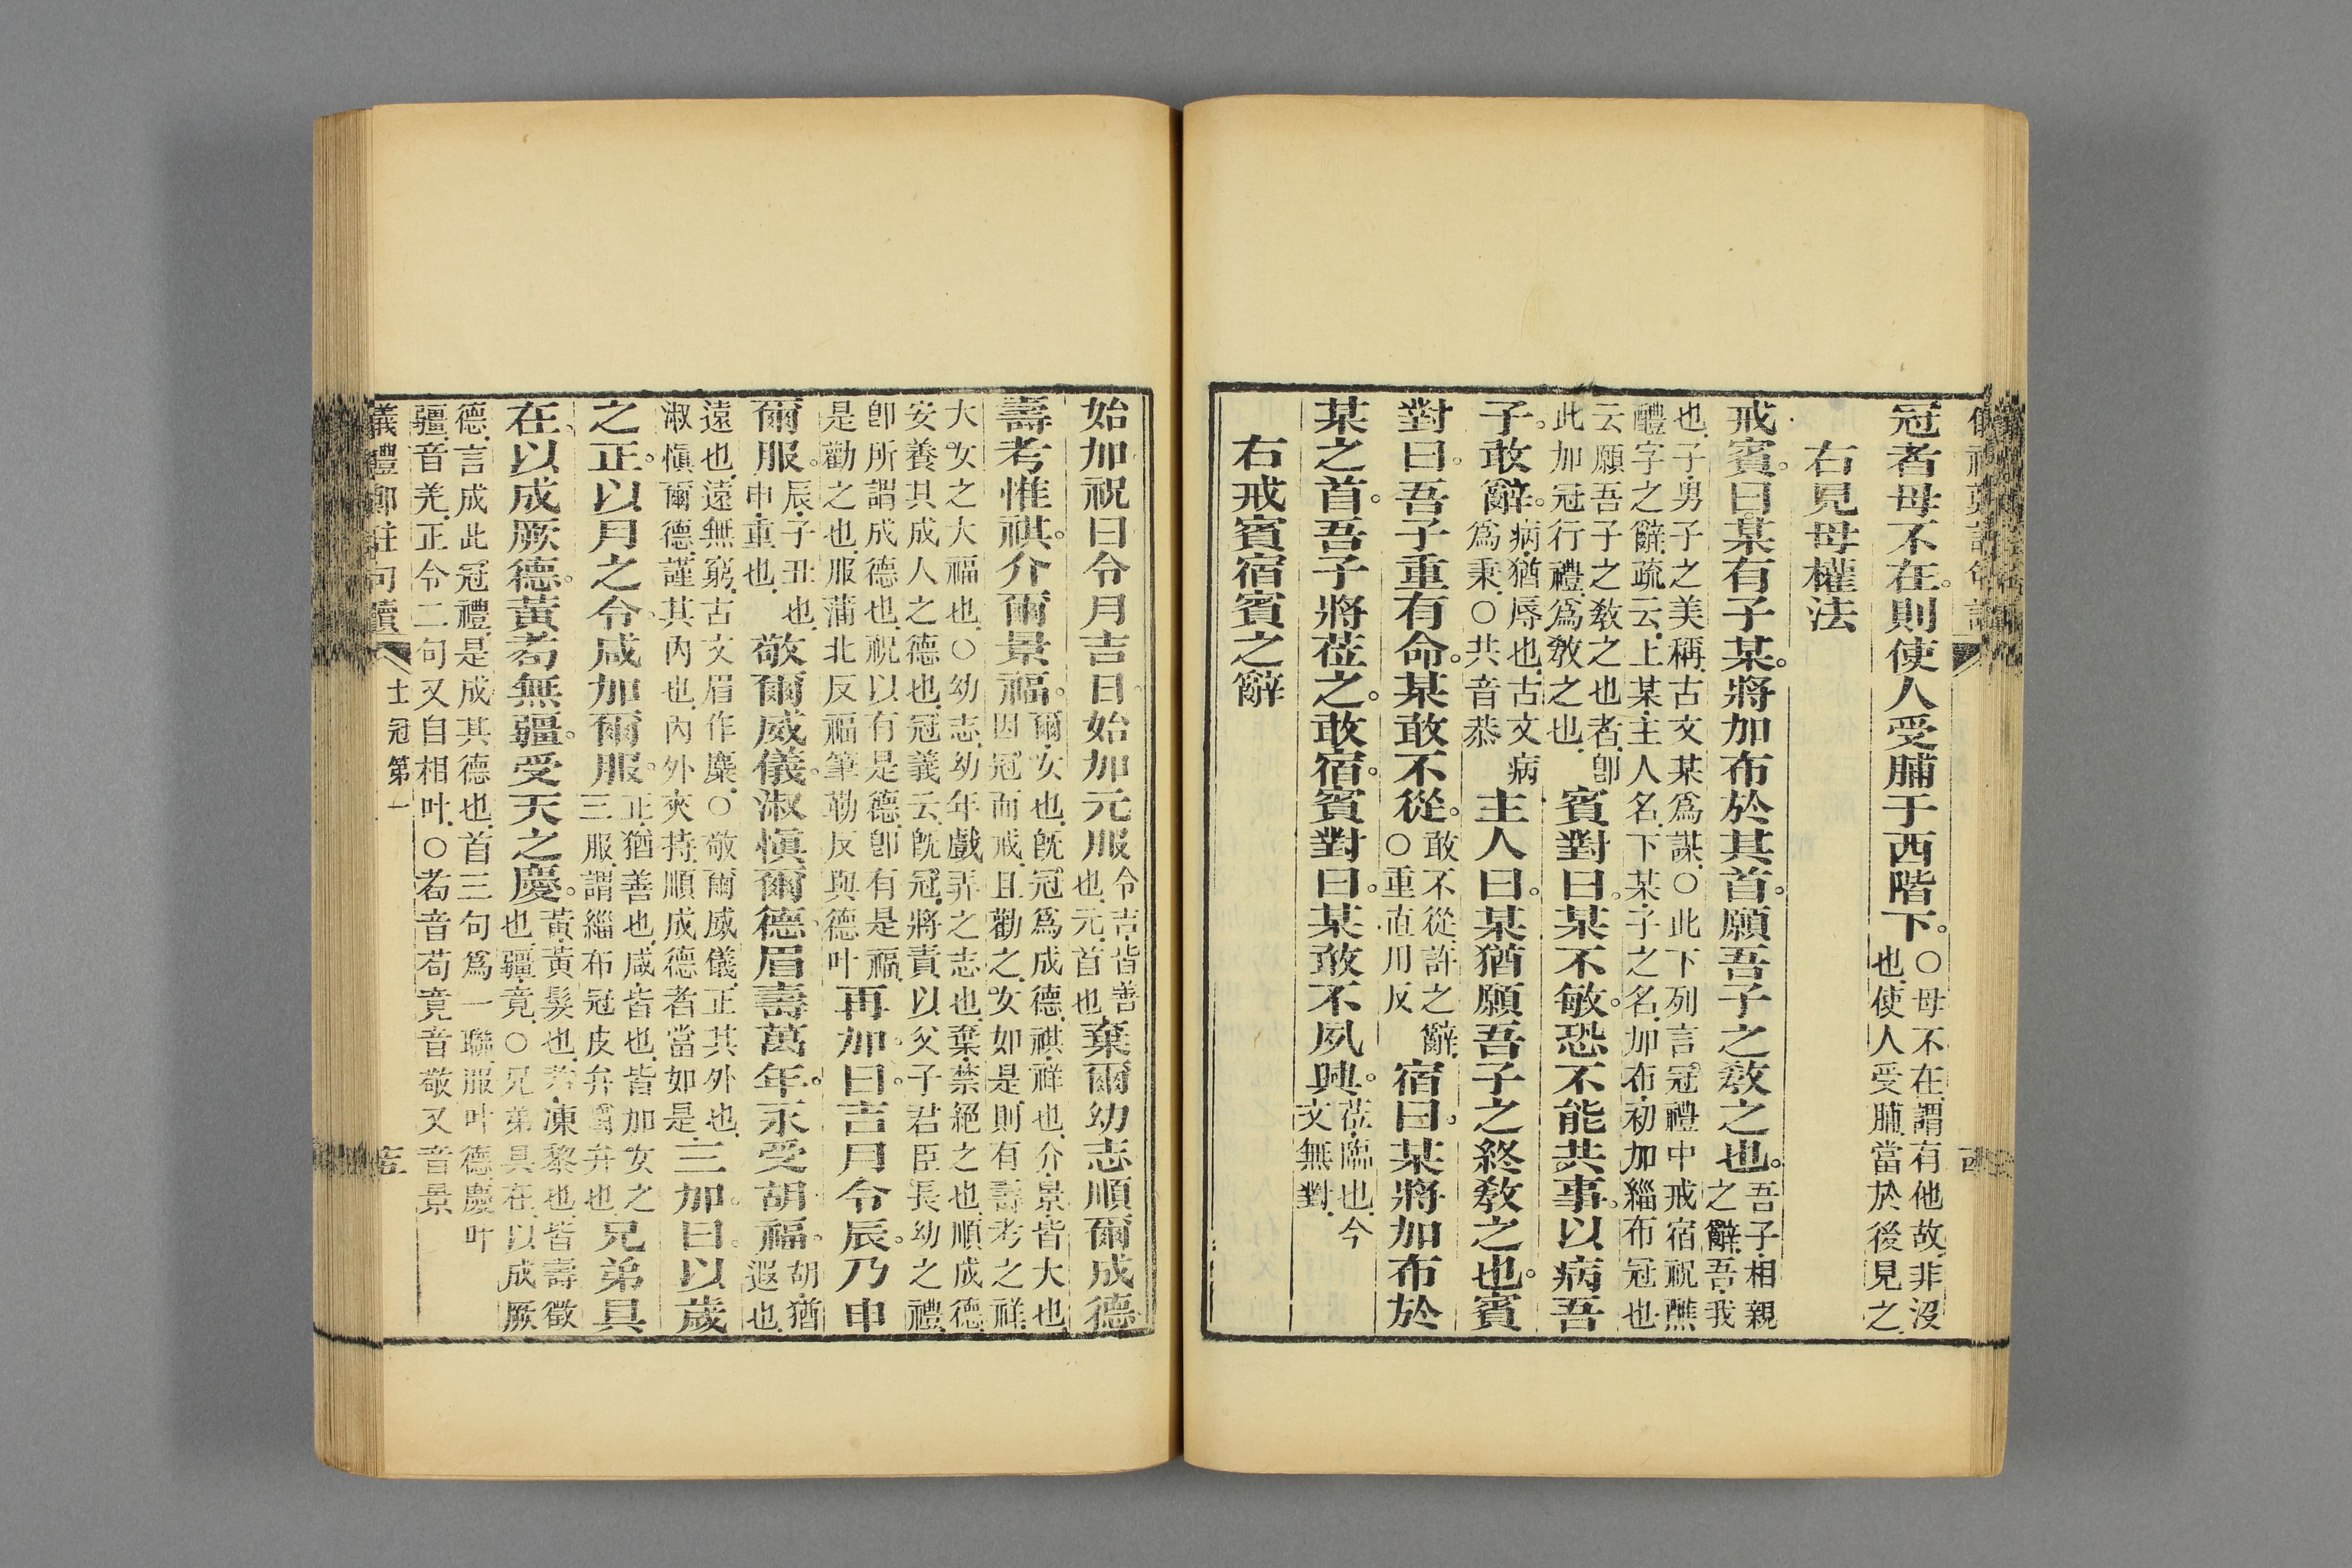 冠者母不在。則使人受脯于西階下。○母不在。謂有他故。非沒
也。使人受脯。當於後見之。
右見母權法
戒賓。曰。某有子某。將加布於其首。願吾子之敎之也。吾子。相親
之辭。吾。我
也。子。男子之美稱。古文某爲謀。○此下列言冠禮中戒宿祝醮
醴字之辭。疏云。上某。主人名。下某。子之名。加布。初加緇布冠也
云願吾子之敎之也者。卽
此加冠行禮。爲敎之也。賓對曰。某不敏。恐不能共事。以病吾
子。敢辭。病。猶辱也。古文病
爲秉。○共音恭 主人曰。某猶願吾子之終敎之也。賓
對曰。吾子重有命。某敢不從。敢不從。許之辭。
○重直用反 宿曰。某將加布於
某之首。吾子將莅之。敢宿。賓對曰。某敢不夙興。莅。臨也。今
文無對。
右戒賓宿賓之辭
始加祝曰。令月吉日。始加元服。令吉。皆善
也。元。首也 棄爾幼志。順爾成德。
壽考惟祺。介爾景福。爾。女也。旣冠爲成德。祺。祥也。介。景。皆大也
因冠而戒。且勸之。女如是。則有壽考之祥。
大女之大福也。○幼志。幼年戲弄之志也。棄。禁絕之也。順成德。
安養其成人之德也。冠義云。旣冠。將責以父子君臣長幼之禮。
卽所謂成德也。祝以有是德。卽有是福。
是勸之也。服蒲北反。福筆勒反。與德叶 再加。曰。吉月令辰。乃申
爾服。辰。子丑也。
申。重也。 敬爾威儀。淑愼爾德。眉壽萬年。永受胡福。胡。猶
遐也。
遠也。遠無窮。古文眉作麋。○敬爾威儀。正其外也。
淑愼爾德。謹其內也。內外夾持。順成德者當如是 三加。曰。以歲
之正。以月之令。咸加爾服。正。猶善也。咸。皆也。皆加女之
三服。謂緇布冠皮弁爵弁也。 兄弟具
在。以成厥德。黃耇無疆。受天之慶。黃。黃髮也。耇。凍黎也。皆壽徵
也。疆。竟。○兄弟具在。以成厥
德。言成此冠禮。是成其德也。首三句爲一聯。服叶德。慶叶
疆。音羌。正令二句又自相叶。○耇音苟竟音敬又音景
儀禮鄭註句讀 士冠第一